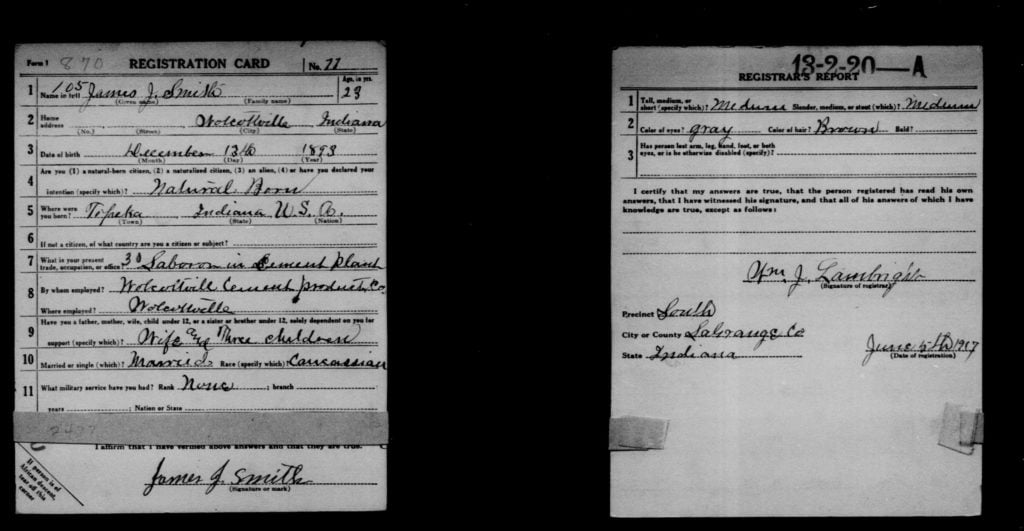 Form 1 870 REGISTRATION CARD No. 77
1 Name in full 105 James J. Smith Age, in yrs. 23
(Given name) (Family name)
2 Home address Wolcottville Indiana
(No.) (Street) (City) (State)
3 Date of birth December 13th 1893
(Month) (Day) (Year)
Are you (1) a natural-born citizen, (2) a naturalized citizen, (3) an alien, (4) or have you declared your
4 intention (specify which)? Natural Born
5 Where were you born? Topeka Indiana U.S.A.
(Town) (State) (Nation)
6 If not a citizen, of what country are you a citizen or subject?
7 What is your present trade, occupation, or office? 30 Laboror in Cement Plant
8 By whom employed? Wolcottvill Cement Product Co.
Where employed? Wolcottville
9 Have you a father, mother, wife, child under 12, or a sister or brother under 12, solely dependent on you for
support (specify which)? Wife and Three children
10 Married or single (which)? Married Race (specify which)? Caucassian
11 What military service have you had? Rank None ; branch
years ; Nation or State
2427
I affirm that I have verified above answers and that they are true.
James J. Smith
(Signature or mark)
If person is of
African descent,
tear off this
corner
13-2-20-A
REGISTRAR'S REPORT
1 Tall, medium, or short (specify which)? Medium Slender, medium, or stout (which)? Medium
2 Color of eyes? gray Color of hair? Brown Bald?
3 Has person lost arm, leg, hand, foot, or both
eyes, or is he otherwise disabled (specify)?
I certify that my answers are true, that the person registered has read his own
answers, that I have witnessed his signature, and that all of his answers of which I have
knowledge are true, except as follows:
Wm. J. Lambright
(Signature of registrar)
Precinct South
City or County LaGrange Co
State Indiana June 5th 1917
(Date of registration)